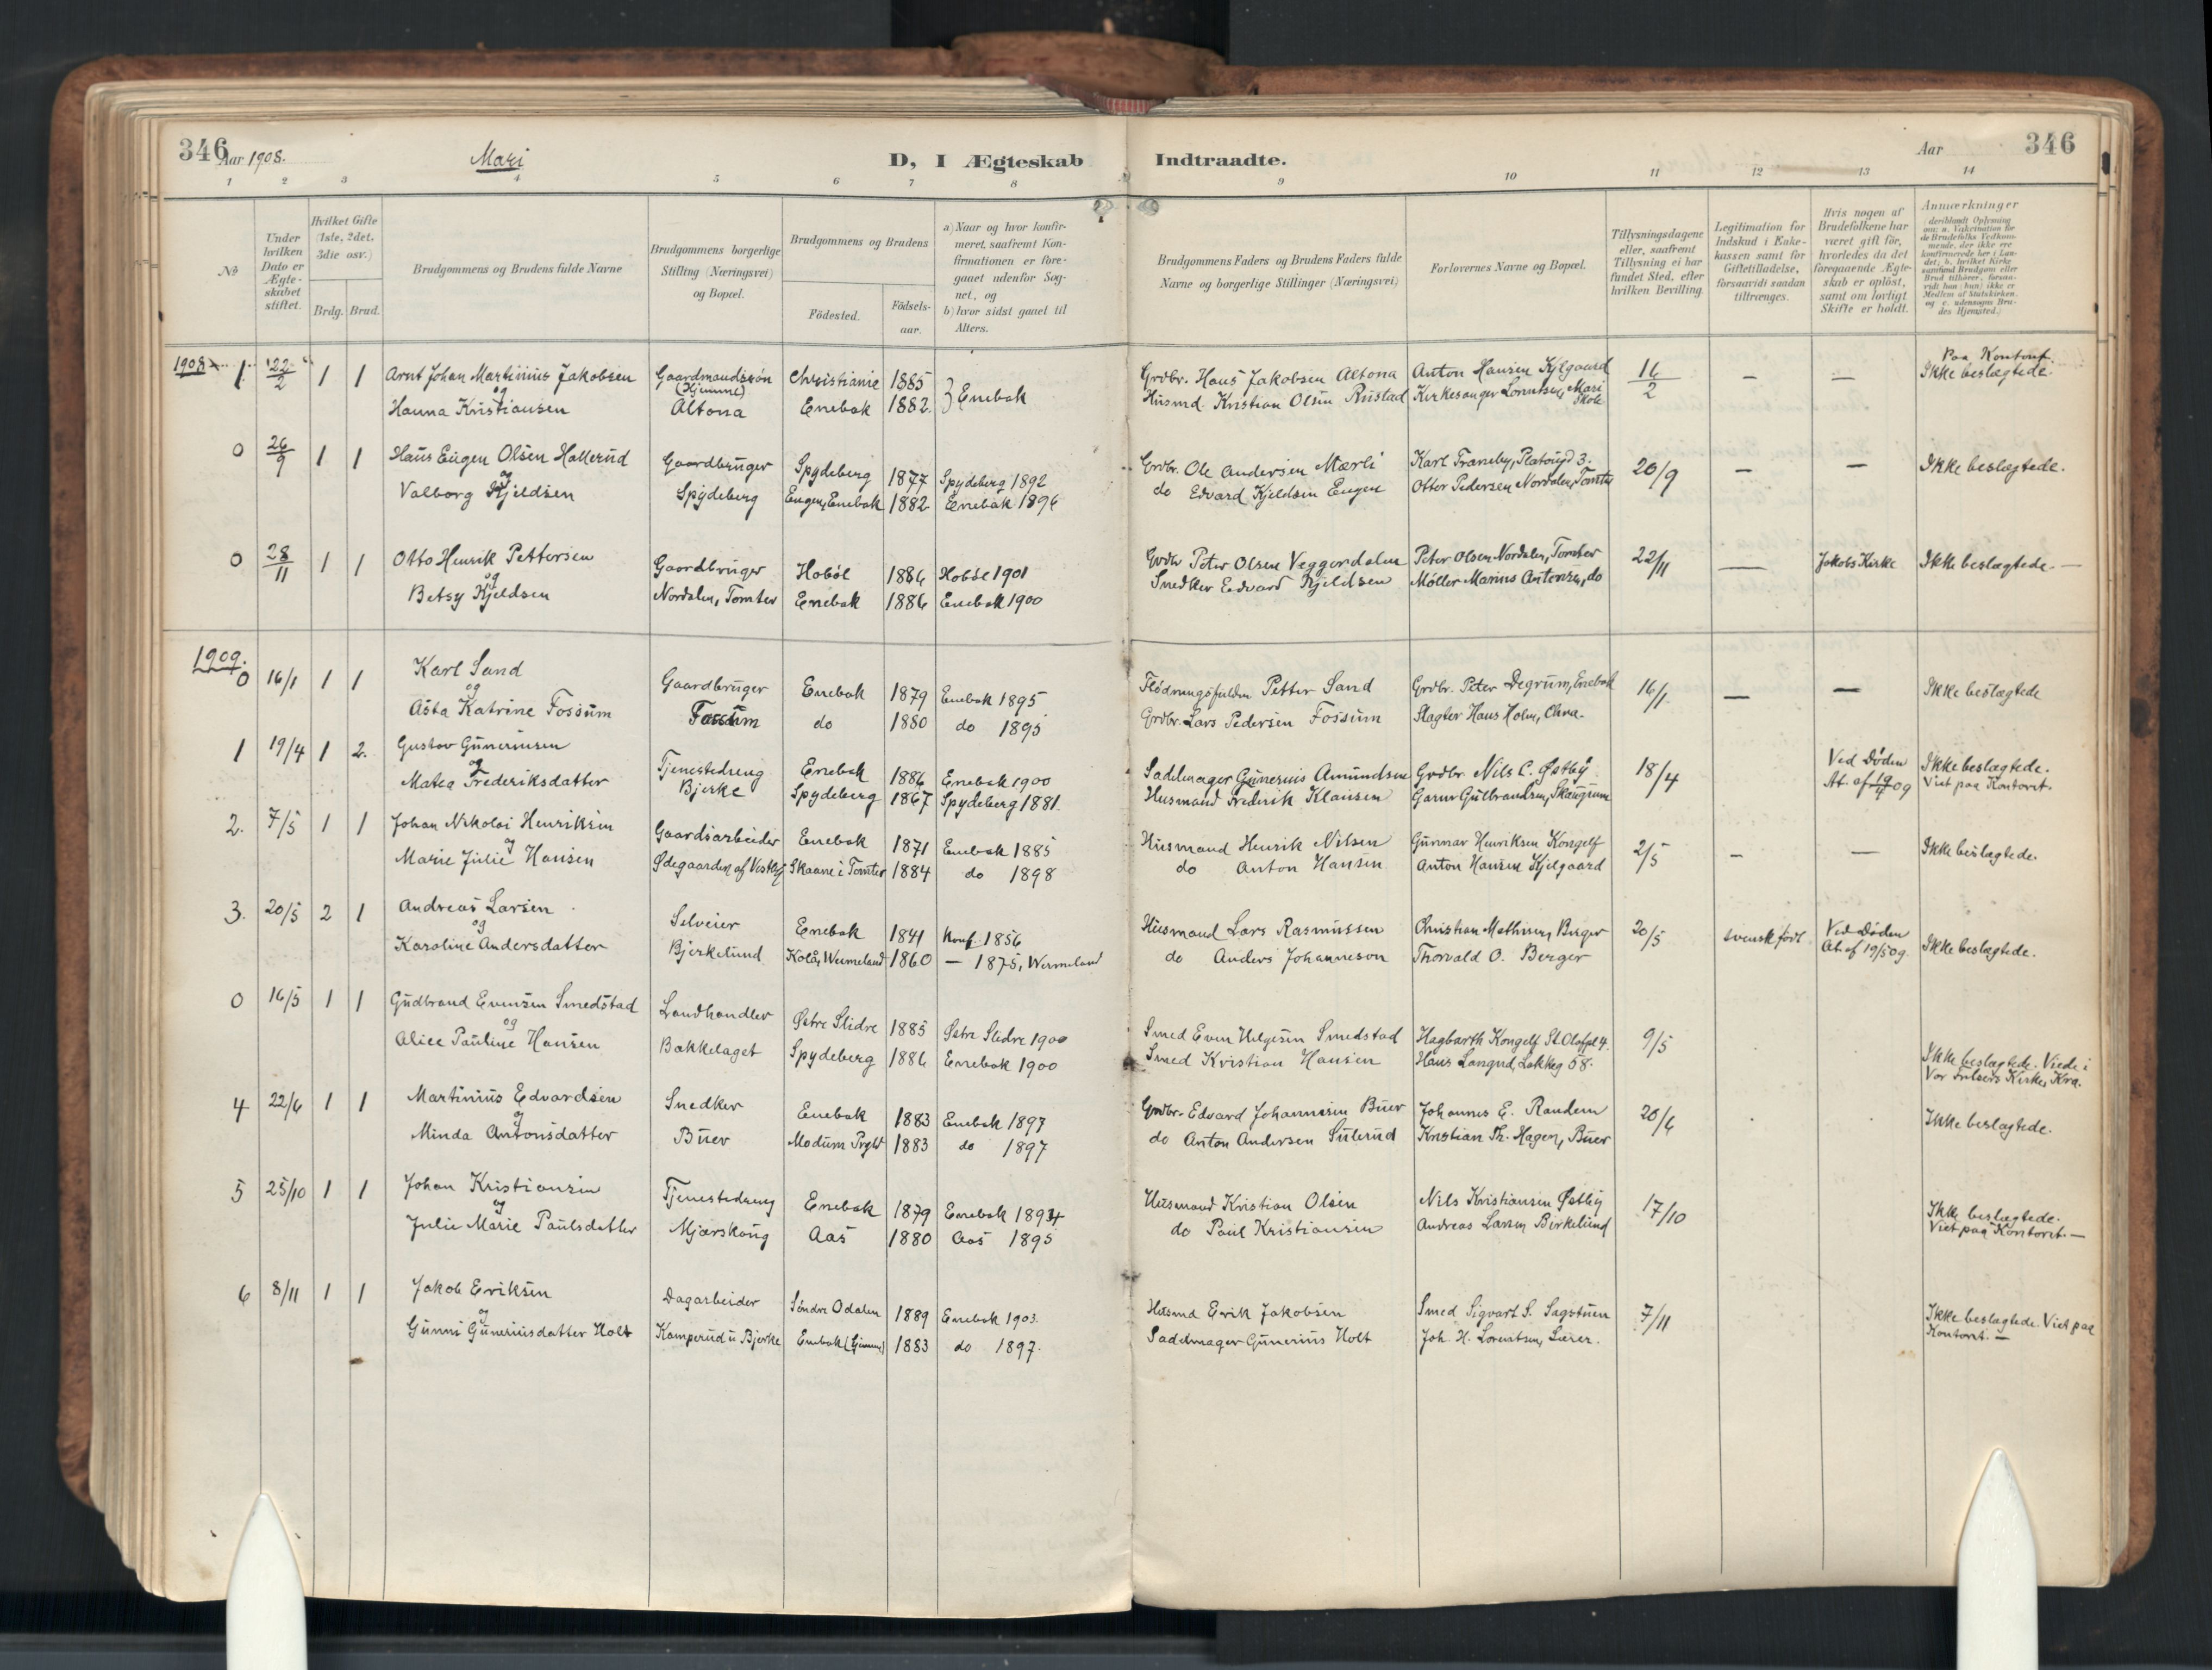 346 Aar 1908. Mari D, I Ægteskab Indtraadte. Aar 346
1 2 3 4 5 6 7 8 9 10 11 12 13 14
№
Under hvilken Dato er Ægteskabet stiftet.
Hvilket Gifte (1ste, 2det, 3die osv.)
Brdg. Brud.
Brudgommens og Brudens fulde Navne
Brudgommens borgerlige Stilling (Næringsvei) og Bopæl.
Brudgommens og Brudens
Födested.
Födsels-aar.
a) Naar og hvor konfirmeret, saafremt Konfirmationen er foregaaet udenfor Sognet, og
b) hvor sidst gaaet til Alters.
Brudgommens Faders og Brudens Faders fulde Navne og borgerlige Stillinger (Næringsvei)
Forlovernes Navne og Bopæl.
Tillysningsdagene eller, saafremt Tillysning ei har fundet Sted, efter hvilken Bevilling.
Legitimation for Indskud i Enkekassen samt for Giftetilladelse, forsaavidt saadan tiltrænges.
Hvis nogen af Brudefolkene har været gift för, hvorledes da det foregaaende Ægteskab er oplöst, samt om lovligt Skifte er holdt.
Anmærkninger
1908 1. 22/2 1 1 Arnt Johan Martinius Jakobsen Gaardmandssøn Christiania 1885 } Enebak Grdbr. Hans Jakobsen Altona Anton Hansen Kjelgaard 16/2 — — Paa Kontoret. Ikke beslægtede.
og (Hjemme)
Hanna Kristiansen Altona Enebak 1882 Husmd. Kristian Olsen Rustad Kirkesanger Lorentsen, Mari Skole
0 26/9 1 1 Hans Eugen Olsen Hallerud Gaardbruger Spydeberg 1877 Spydeberg 1892 Grdbr. Ole Andersen Mærli Karl Traneby, Platougd 3. 20/9 — — Ikke beslægtede.
og
Valborg Kjeldsen Spydeberg Eugen, Enebak 1882 Enebak 1896 do Edvard Kjeldsen Eugen Otter Pedersen Nordalen, Tomter
0 28/11 1 1 Otto Henrik Pettersen Gaardbruger Hobøl 1886 Hobøl 1901 Grdbr Peter Olsen Veggerdalen Peter Olsen Nordalen, Tomter 22/11 — Jakobs Kirke Ikke beslægtede. —
og
Betsy Kjeldsen Nordalen, Tomter Enebak 1886 Enebak 1900 Snedker Edvard Kjeldsen Møller Marius Antonsen, do
1909.
0 16/1 1 1 Karl Sand Gaardbruger Enebak 1879 Enebak 1895 Petter Sand Grdbr. Peter Degrum, Enebak 16/1 — — Ikke beslægtede
og
Asta Katrine Fossum Fossum do 1880 do 1895 Grdbr. Lars Pedersen Fossum Slagter Hans Holm, Chra.
1 19/4 1 2. Gustav Gunerinsen Tjenestedreng Enebak 1886 Enebak 1900 Sadelmager Gunerius Amundsen Grdbr. Nils C. Østby 18/4 Ved Døden Ikke beslægtede.
og
Matea Frederiksdatter Bjerke Spydeberg 1867 Spydeberg 1881. Husmand Frederik Klausen Garver Gulbrandsen, Skaugrum At. af 19/4 09 Viet paa Kontoret.
2. 7/5 1 1 Johan Nikolai Henriksen Gaardsarbeider Enebak 1871 Enebak 1885 Husmand Henrik Nilsen Gunnar Henriksen Kongelf 2/5 — — Ikke beslægtede.
og
Marie Julie Hansen Ødegaarden af Vestby Skaane i Tomter 1884 do 1898 do Anton Hansen Anton Hansen Kjelgaard
3. 20/5 2 1 Andreas Larsen Selveier Enebak 1841 Konf. 1856 Husmand Lars Rasmussen Christian Mathisen, Berger 20/5 svensk født Ved Døden Ikke beslægtede.
og
Karoline Andersdatter Bjerkelund Kolå, Wermeland 1860 — 1875, Wermeland do Anders Johanneson Thorvald O. Berger At. af 19/5 09.
0 16/5 1 1 Gudbrand Evensen Smedstad Landhandler Østre Slidre 1885 Østre Slidre 1900 Smed Even Helgesen Smedstad Hagbarth Kongelf St. Olafspl 4. 9/5 Ikke beslægtede. Viede i
og
Alice Pauline Hansen Bækkelaget Spydeberg 1886 Enebak 1900 Smed Kristian Hansen Hans Langrud, Løkkeg 58. Vor Frelsers Kirke, Kra.
4 22/6 1 1 Martinius Edvardsen Snedker Enebak 1883 Enebak 1897 Grdbr. Edvard Johannesen Buer Johannes E. Randem 20/6 Ikke beslægtede.
og
Minda Antonsdatter Buer Modum Prgld 1883 do 1897 do Anton Andersen Sulerud Kristian Th. Hagen, Buer
5 25/10 1 1 Johan Kristiansen Tjenestedreng Enebak 1879 Enebak 1894 Husmand Kristian Olsen Nils Kristiansen Østby 17/10 Ikke beslægtede.
og
Julie Marie Paulsdatter Mjærskoug Aas 1880 Aas 1895 do Paul Kristiansen Andreas Larsen Birkelund Viet paa Kontoret. —
6 8/11 1 1 Jakob Eriksen Dagarbeider Søndre Odalen 1889 Enebak 1903. Husmd Erik Jakobsen Smed Sigvart S. Sagstuen 7/11 Ikke beslægtede. Viet paa
og
Gunni Guneriusdatter Holt Kamperud u Bjerke Enebak 1883 do 1897. Saddmager Gunerius Holt Joh. H. Lorentsen, Lærer. Kontoret. —